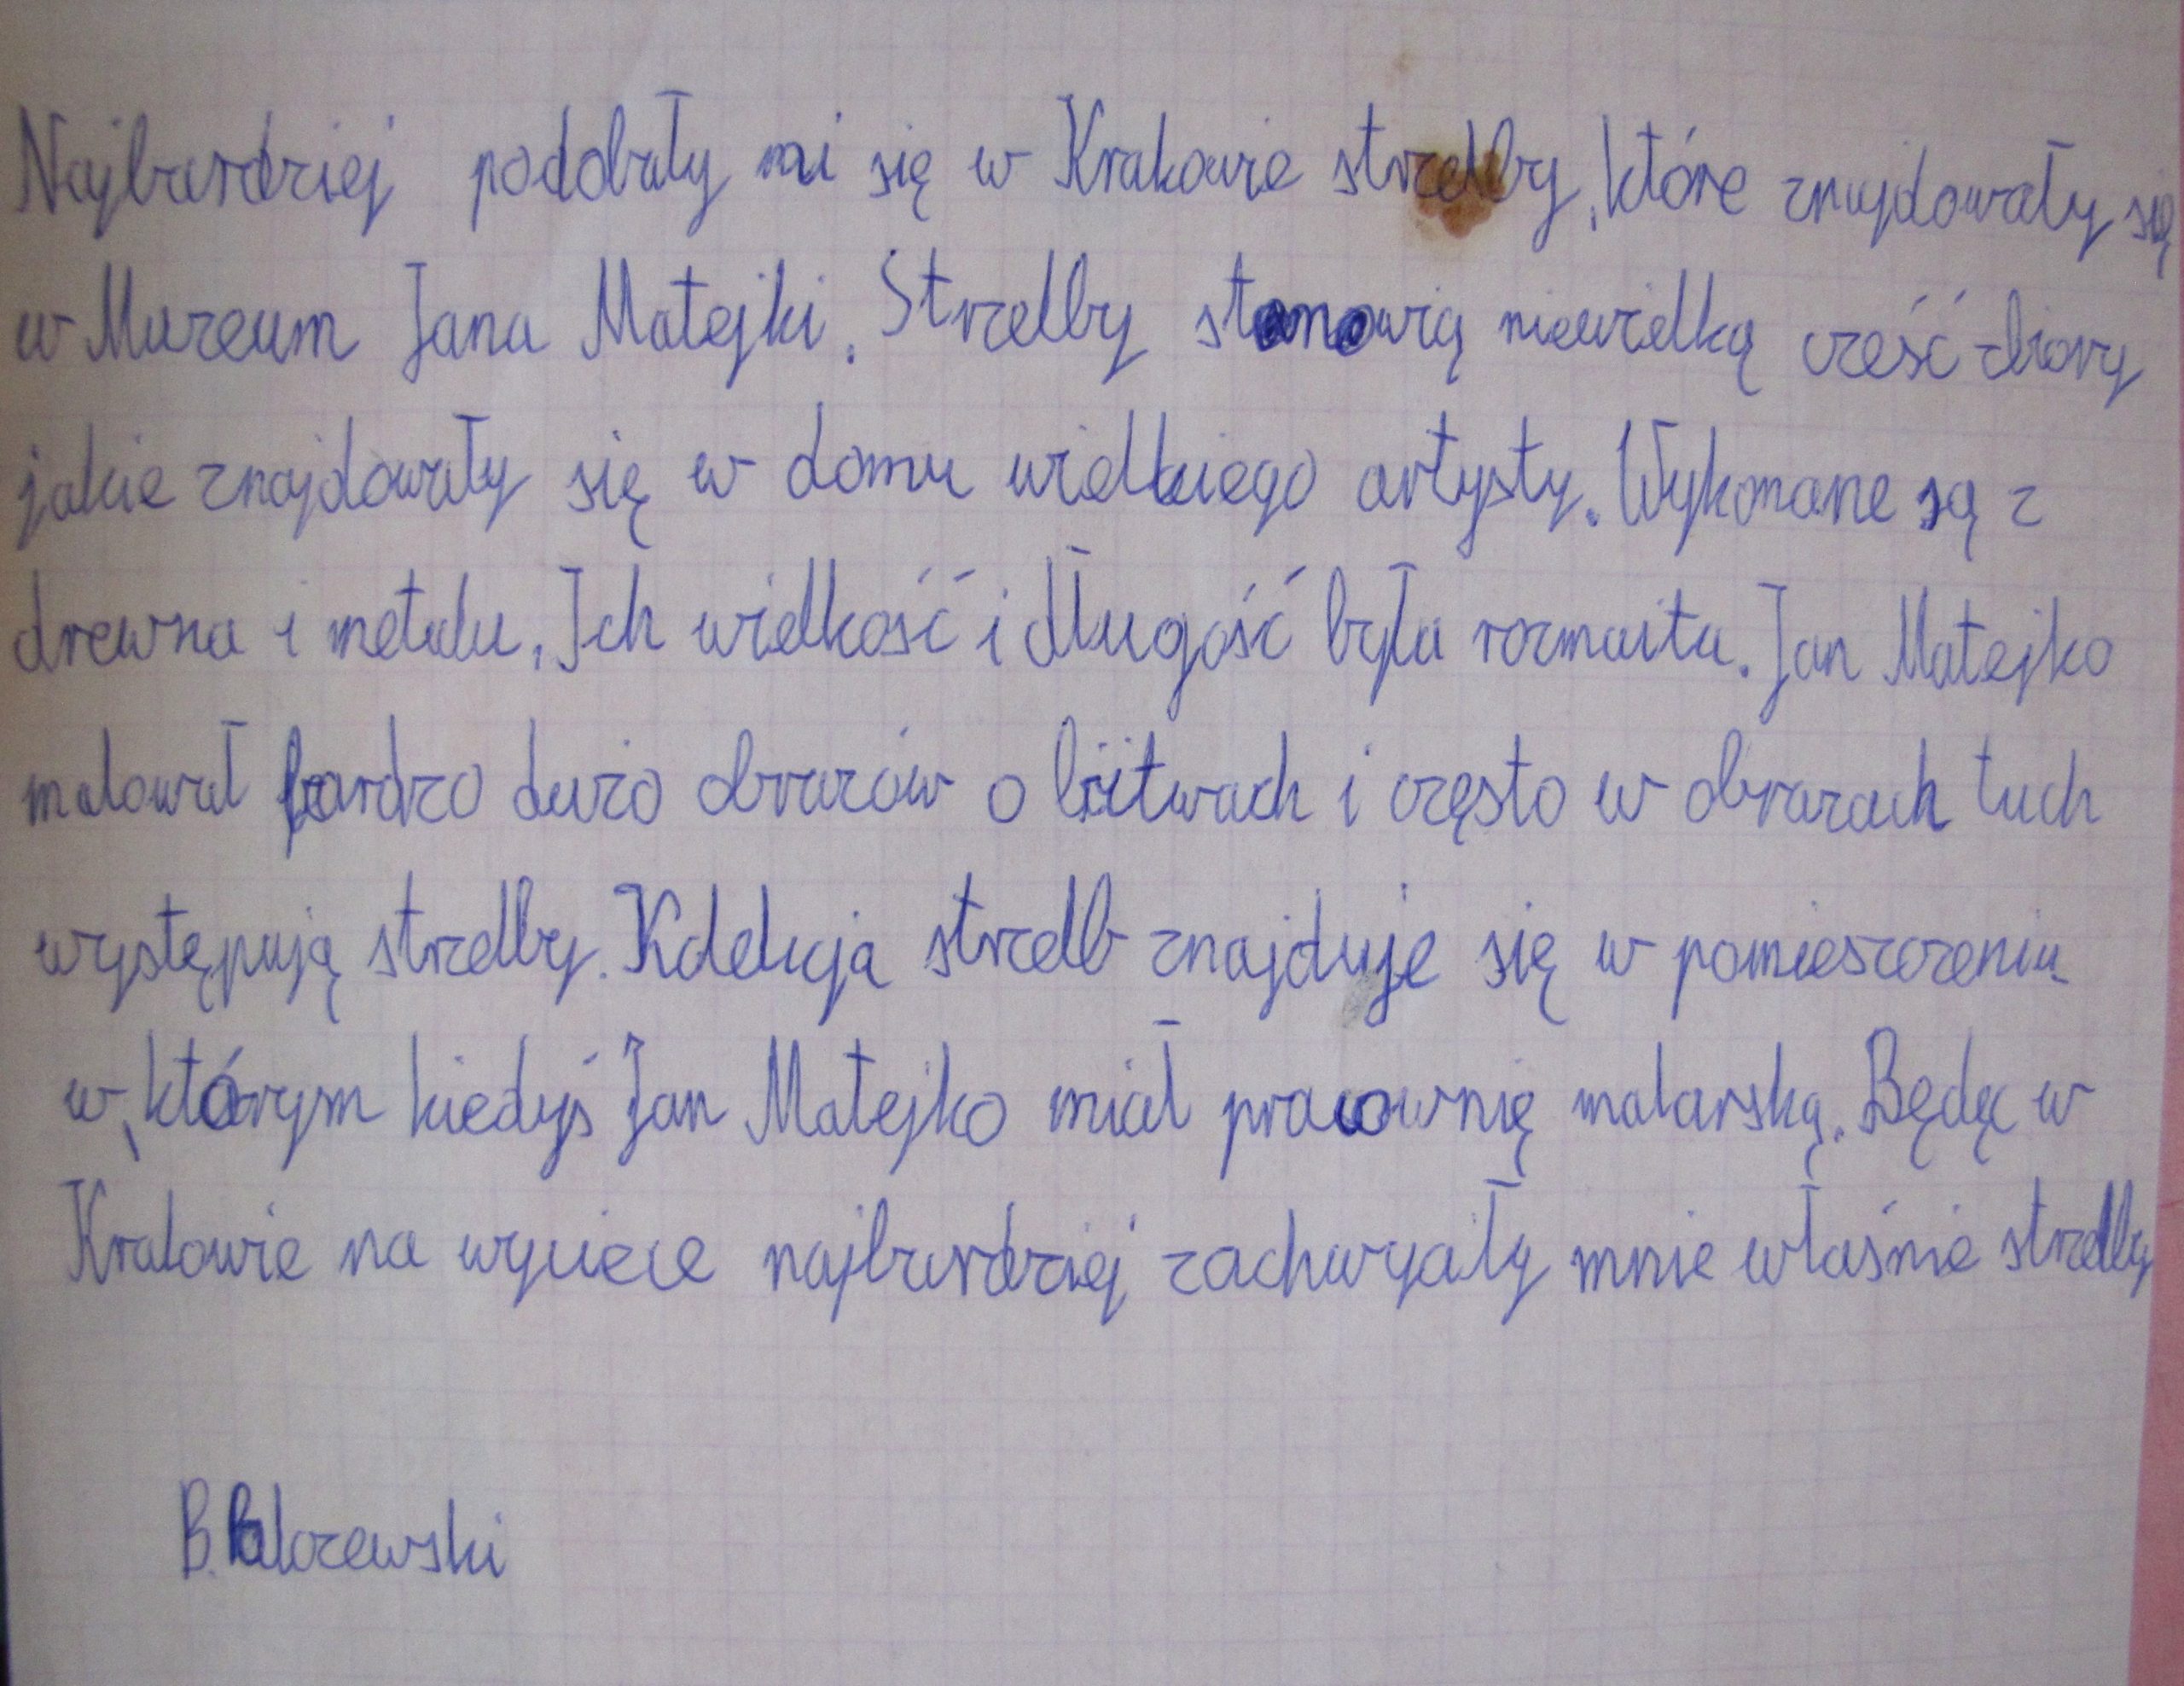 Najbardziej podobały mi się w Krakowie strzelby, które znajdowały się
w Muzeum Jana Matejki. Strzelby stanowią niewielką cześć zbiory
jakie znajdowały się w domu wielkiego artysty. Wykonane są z
drewna i metalu. Ich wielkość i długość była rozmaita. Jan Matejko
malował bardzo dużo obrazów o bitwach i często w obrazach tych
występują strzelby. Kolekcja strzelb znajduje się w pomieszczeniu
w, którym kiedyś Jan Matejko miał pracownię malarską. Będęc w
Krakowie na wyciece najbardziej zachwycały mnie właśnie strzelby
B.